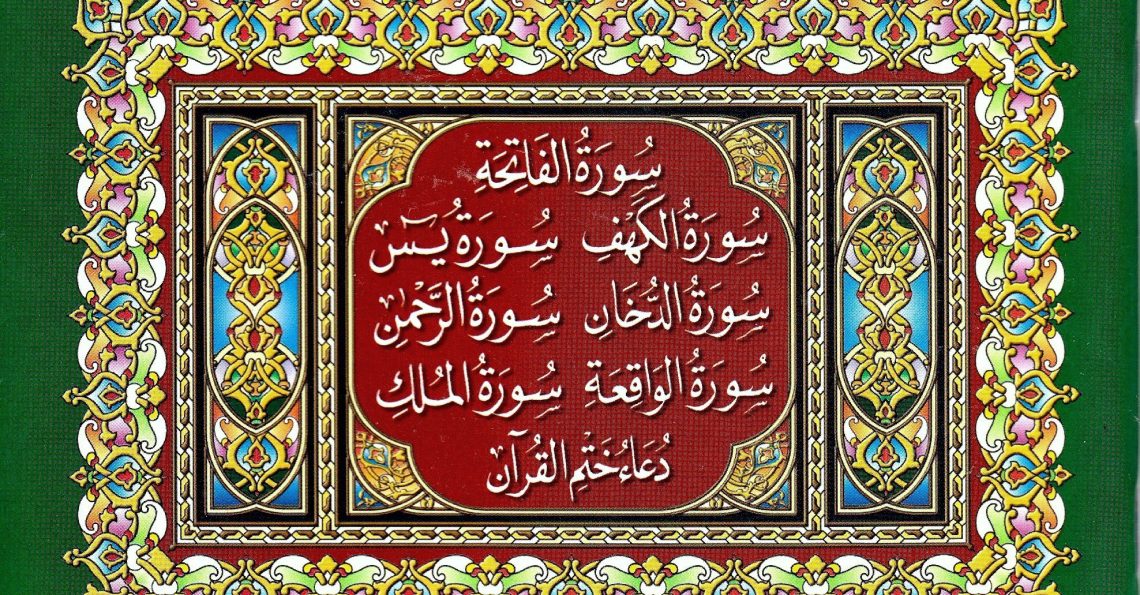 سُورَةُ الفَاتِحَةِ
سُورَةُ الكَهْفِ سُورَةُ يٓسٓ
سُورَةُ الدُّخَانِ سُورَةُ الرَّحْمٰنِ
سُورَةُ الوَاقِعَةِ سُورَةُ المُلكِ
دُعَاءُ خَتْمِ القُرآنِ